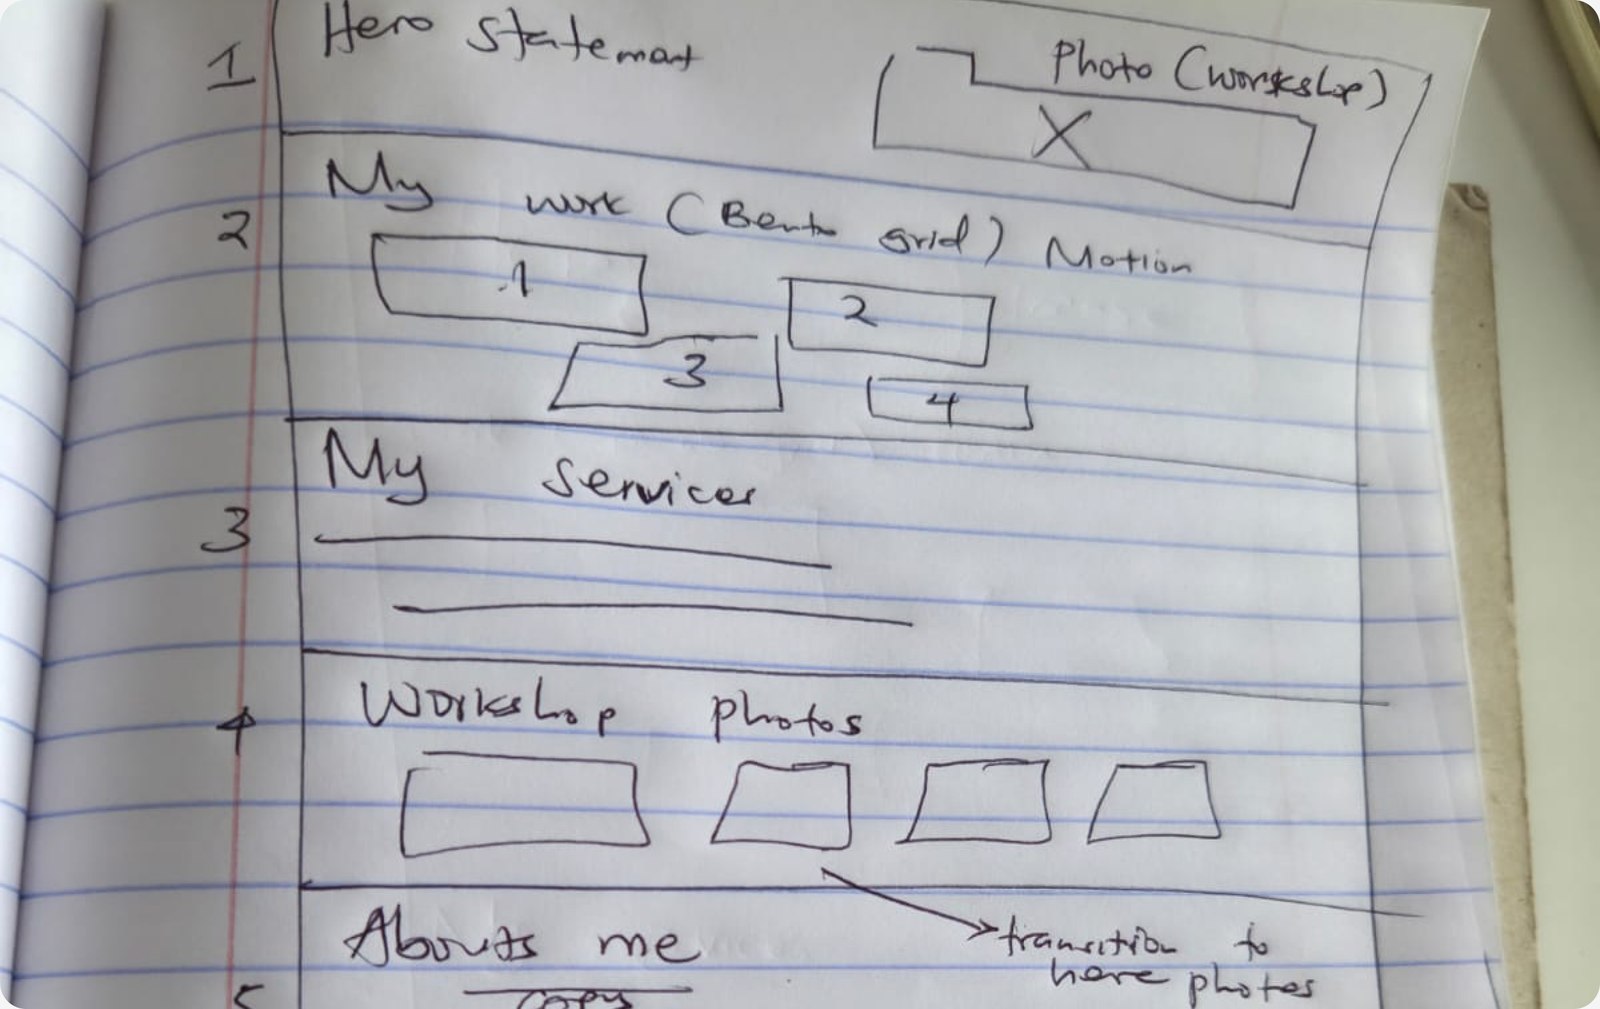 1
Hero statement
Photo (workshop)
X
2
My work (Bento grid) Motion
1
2
3
4
3
My services
4
Workshop photos
transition to
here photos
5
Abouts me
copy